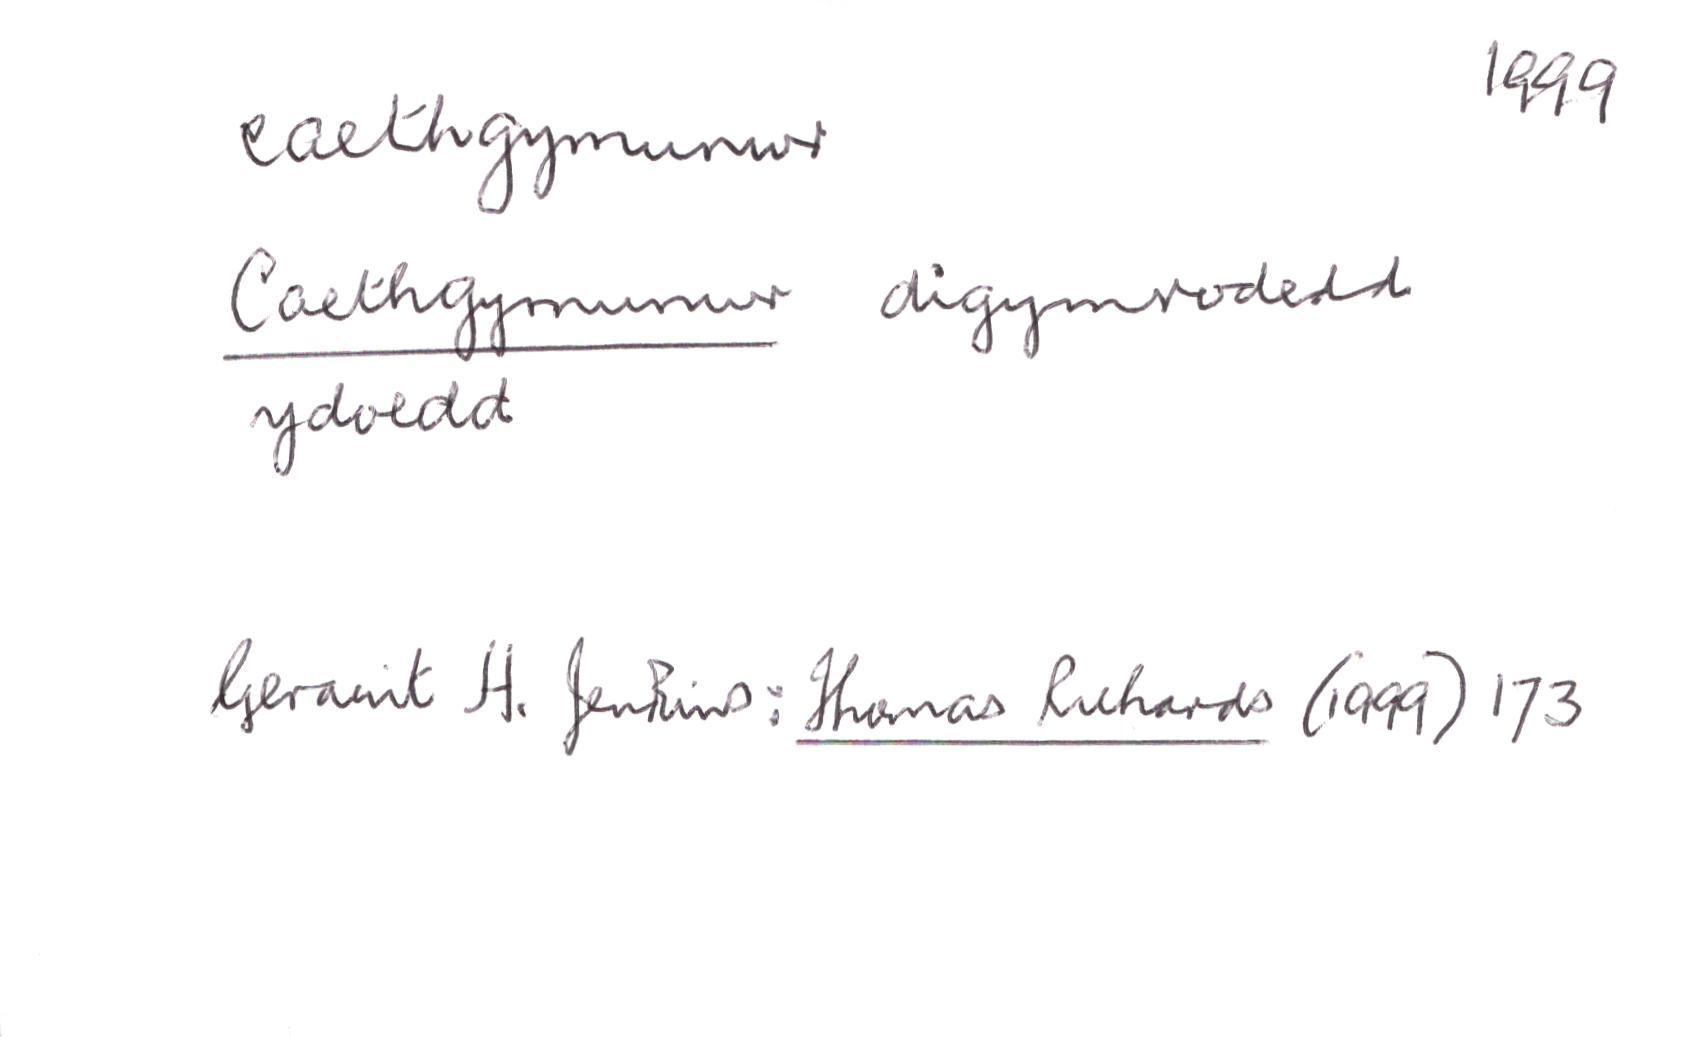 1999
caethgymunwr
Caethgymunwr digymrodedd
ydoedd
Geraint H. Jenkins: Thomas Richards (1999) 173